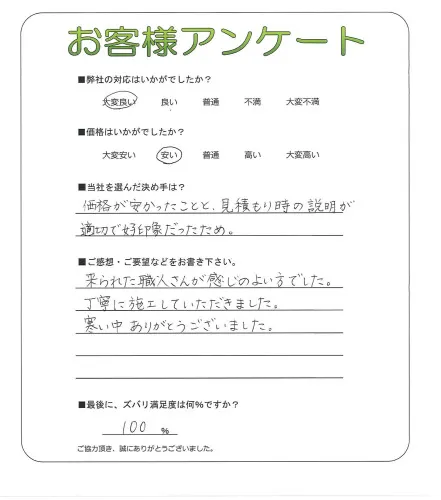 お客様アンケート
■弊社の対応はいかがでしたか？
大変良い 良い 普通 不満 大変不満
■価格はいかがでしたか？
大変安い 安い 普通 高い 大変高い
■当社を選んだ決め手は？
価格が安かったことと、見積もり時の説明が
適切で好印象だったため。
■ご感想・ご要望などをお書き下さい。
来られた職人さんが感じのよい方でした。
丁寧に施工していただきました。
寒い中ありがとうございました。
■最後に、ズバリ満足度は何％ですか？
100 ％
ご協力頂き、誠にありがとうございました。